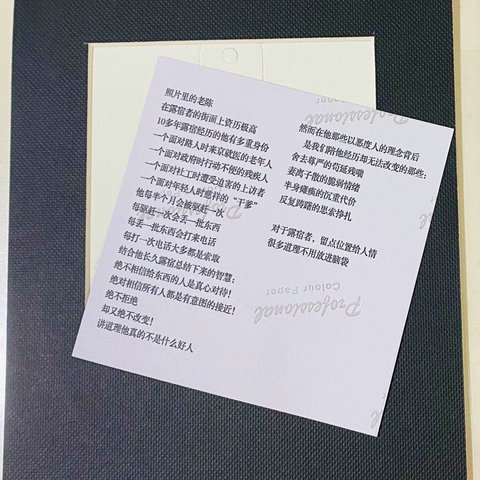 照片里的老陈
在露宿者的街面上资历极高
10多年露宿经历的他有多重身份
一个面对路人时来京就医的老年人
一个面对政府时行动不便的残疾人
一个面对社工时遭受迫害的上访者
一个面对年轻人时慈祥的“干爹”
他每半个月会被驱赶一次
每驱赶一次会丢一批东西
每丢一批东西会打来电话
每打一次电话大多都是索取
结合他长久露宿总结下来的智慧:
绝不相信给东西的人是真心对待!
绝对相信所有人都是有意图的接近!
绝不拒绝
却又绝不改变!
讲道理他真的不是什么好人
然而在他那些以恶度人的理念背后
是我们陪他经历却无法改变的那些:
舍去尊严的苟延残喘
妻离子散的脆弱情绪
半身瘫痪的沉重代价
反复跨踏的思索挣扎
对于露宿者，留点位置给人情
很多道理不用放进脑袋
Professional
Colour Paper
Professional
Colour Paper